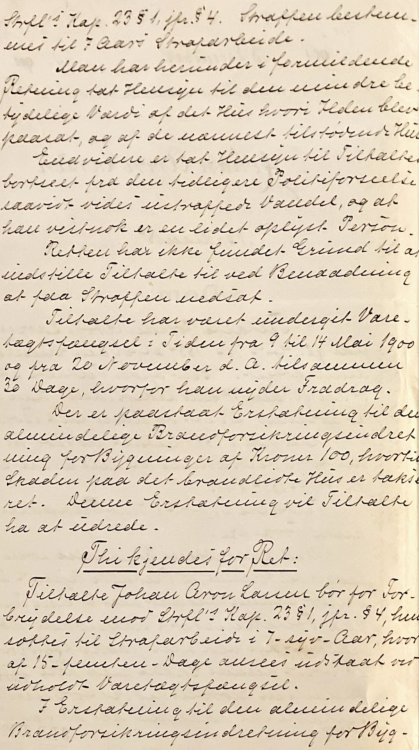 Strfl's Kap. 23 § 1, jfr. § 4. Straffen bestem-
mes til 7 Aars Strafarbeide.
Man har herunder i formildende
Retning tat Hensyn til den mindre be-
tydelige Værdi af det Hus hvori Ilden blev
paasat, og af de nærmest tilstødende Hus
Endvidere er tat Hensyn til Tiltaltes
bortseet fra den tidligere Politiforseelse
saavidt vides ustraffede Vandel, og at
han vistnok er en lidet oplyst Person.
Retten har ikke fundet Grund til at
indstille Tiltalte til ved Benaadning
at faa Straffen nedsat.
Tiltalte har været undergit Vare-
tægtsfængsel i Tiden fra 9 til 14 Mai 1900
og fra 20 November d. A. tilsammen
30 Dage, hvorfor han nyder Fradrag.
Der er paastaat Erstatning til den
almindelige Brandforsikringsindret
ning for Bygninger af Kroner 100, hvortil
Skaden paa det brandlidte Hus er takse
ret. Denne Erstatning vil Tiltalte
ha at udrede.
Thi kjendes for Ret:
Tiltalte Johan Aron bør for For-
brydelse mod Strfl's Kap. 23 § 1, jfr. § 4, hen
sættes til Strafarbeide i 7-syv-Aar, hvor
af 15-femten-Dage ansees udstaat ved
udholdt Varetægtsfængsel.
I Erstatning til den almindelige
Brandforsikringsindretning for Byg-